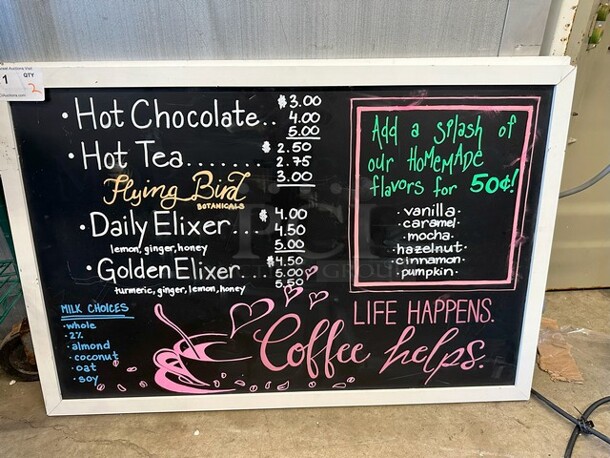 1 QTY
2
• Hot Chocolate.. $3.00
4.00
5.00
• Hot Tea....... $2.50
2.75
3.00
Flying Bird
BOTANICALS
• Daily Elixer... $4.00
4.50
5.00
lemon, ginger, honey
• Golden Elixer... $4.50
5.00
5.50
turmeric, ginger, lemon, honey
MILK CHOICES
• whole
• 2%
• almond
• coconut
• oat
• soy
Add a splash of
our HOMEMADE
flavors for 50¢!
• vanilla •
• caramel •
• mocha •
• hazelnut •
• cinnamon •
• pumpkin •
LIFE HAPPENS.
Coffee helps.